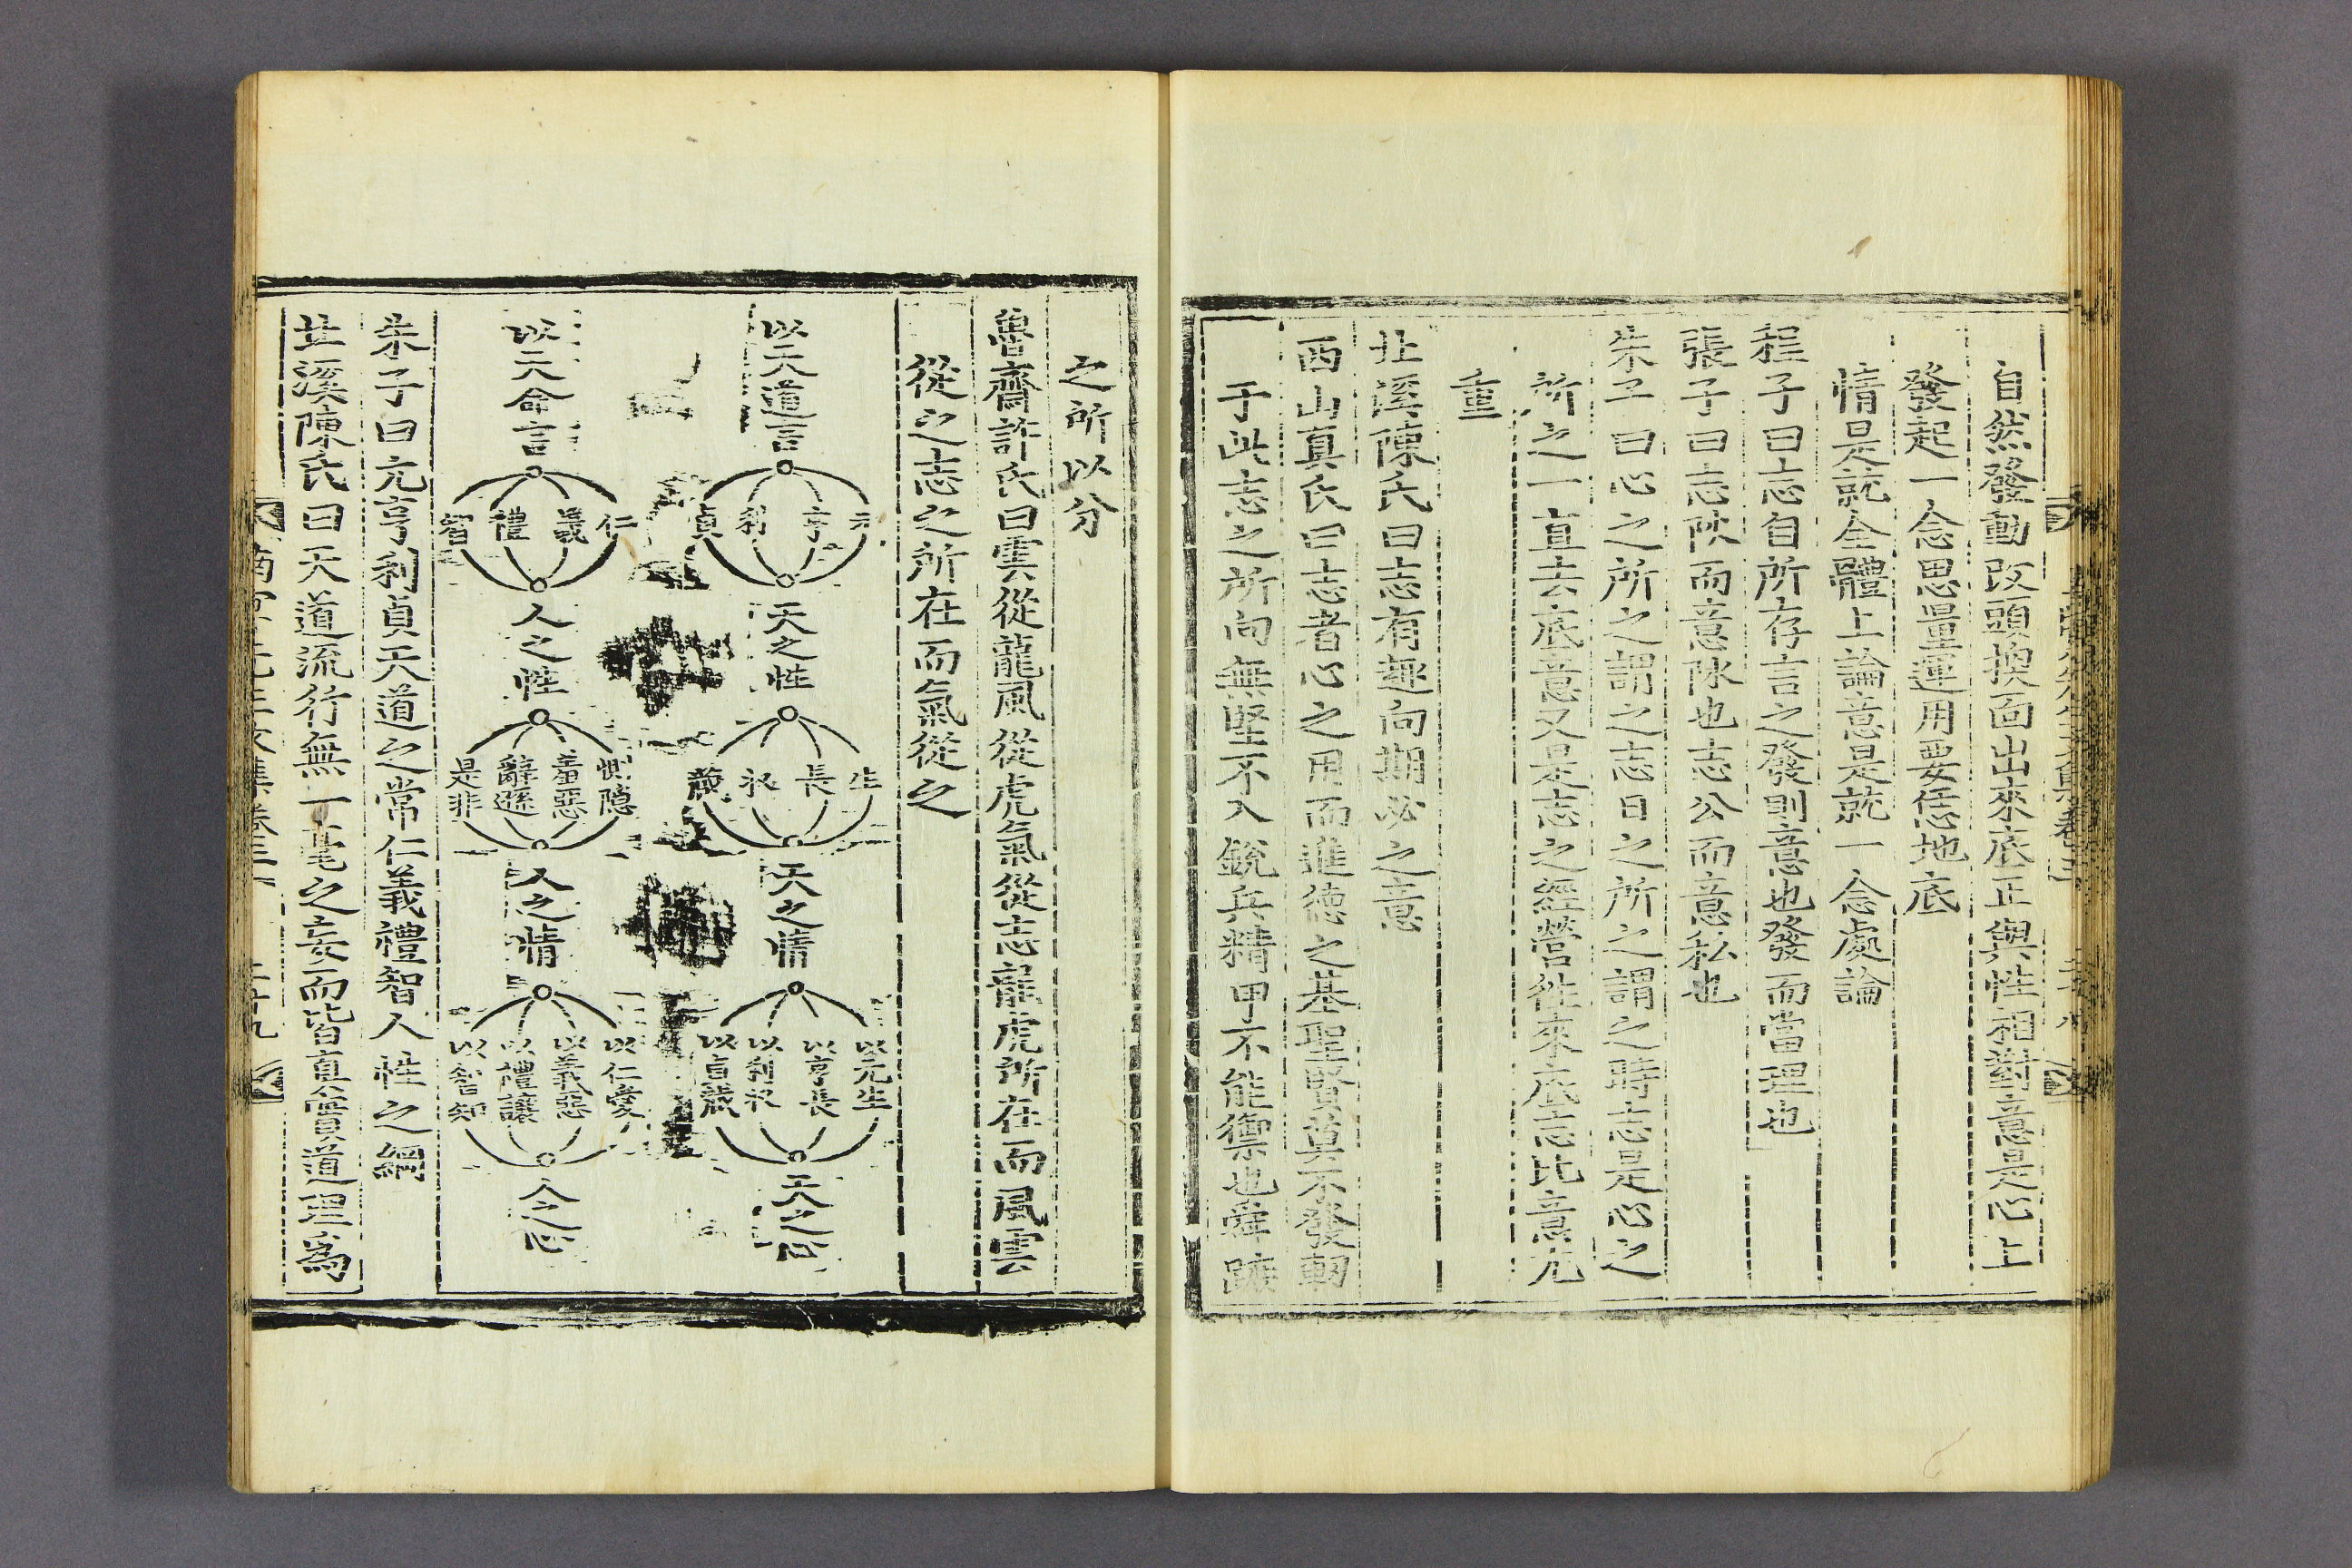 自然發動改頭換面出來底正與性相對意是心上
發起一念思量運用要恁地底
情是就全體上論意是就一念處論
程子曰志自所存言之發則意也發而當理也
張子曰志公而意私也
朱子曰心之所之謂之志日之所之謂之時志是心之
所之一直去底意又是志之經營往來底志比意尤
重
北溪陳氏曰志有趣向期必之意
西山真氏曰志者心之用而進德之基聖賢莫不發軔
于此志之所向無堅不入銳兵精甲不能禦也舜蹠
之所以分
魯齋許氏曰雲從龍風從虎氣從志龍虎所在而風雲
從之志之所在而氣從之
以天道言
元 亨 利 貞
天之性
生 長 收 藏
天之情
以元生 以亨長 以利收 以貞藏
天之心
以天命言
仁 義 禮 智
人之性
惻隱 羞惡 辭遜 是非
人之情
以仁愛 以義惡 以禮讓 以智知
人之心
朱子曰元亨利貞天道之常仁義禮智人性之綱
北溪陳氏曰天道流行無一毫之妄而皆真實道理爲